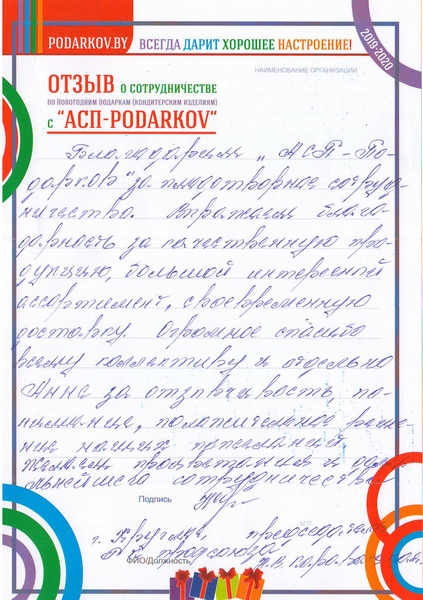 PODARKOV.BY
ВСЕГДА ДАРИТ ХОРОШЕЕ НАСТРОЕНИЕ!
2019-2020
НАИМЕНОВАНИЕ ОРГАНИЗАЦИИ
ОТЗЫВ О СОТРУДНИЧЕСТВЕ
ПО НОВОГОДНИМ ПОДАРКАМ (КОНДИТЕРСКИМ ИЗДЕЛИЯМ)
С "АСП-PODARKOV"
Благодарим „АСП-По-
дарков" за плодотворное сотруд-
ничество. Выражаем благо-
дарность за качественную про-
дукцию, большой интересный
ассортимент, своевременную
доставку. Огромное спасибо
всему коллективу и отдельно
Анне за отзывчивость, по-
нимание, положительное реше-
ние наших пожеланий.
Желаем процветания и даль-
нейшего сотрудничества
Подпись
М.П.
г. Круглое, председатель
профсоюза
ФИО/Должность